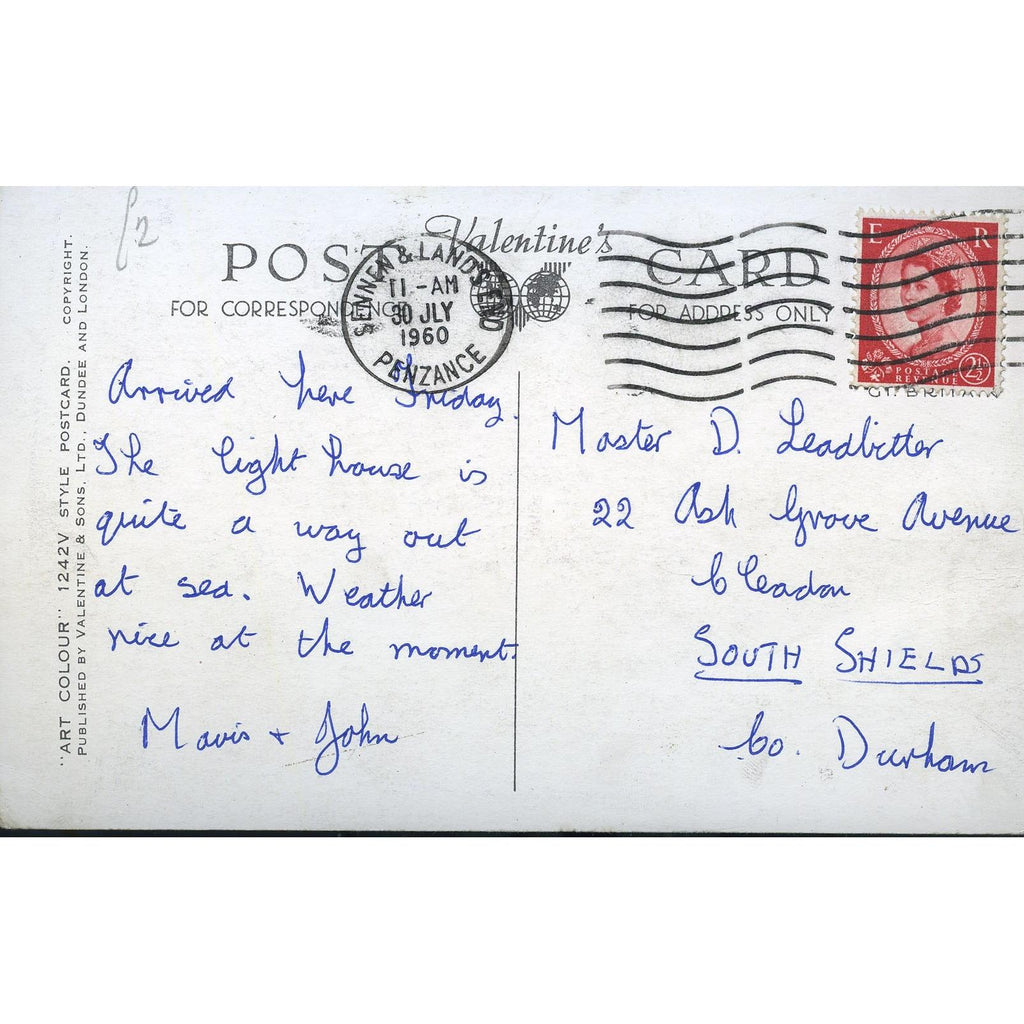 £2
Valentine's
POST CARD
FOR CORRESPONDENCE
FOR ADDRESS ONLY
SENNEN & LANDS END
11 - AM
30 JLY
1960
PENZANCE
E R
POSTAGE
REVENUE
2½
GT. BRITAIN
Arrived here Friday.
The light house is
quite a way out
at sea. Weather
nice at the moment.
Mavis + John
Master D. Leadbitter
22 Ash Grove Avenue
Cleadon
SOUTH SHIELDS
Co. Durham
"ART COLOUR" 1242V STYLE POSTCARD. COPYRIGHT.
PUBLISHED BY VALENTINE & SONS, LTD., DUNDEE AND LONDON.